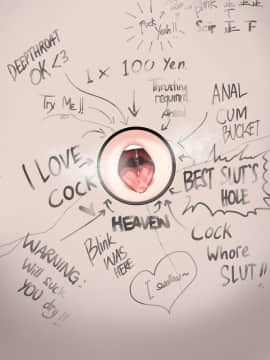 Fuck
Yeah!!
DEEPTHROAT
OK <3
1 x 100 Yen
Try Me!!
Thrusting
required
ANAL
CUM
BUCKET
I LOVE
COCK
BEST SLUT'S
HOLE
HEAVEN
Blink
WAS
HERE
Cock
Whore
SLUT!!
WARNING:
Will suck
YOU dry!!
I swallow~